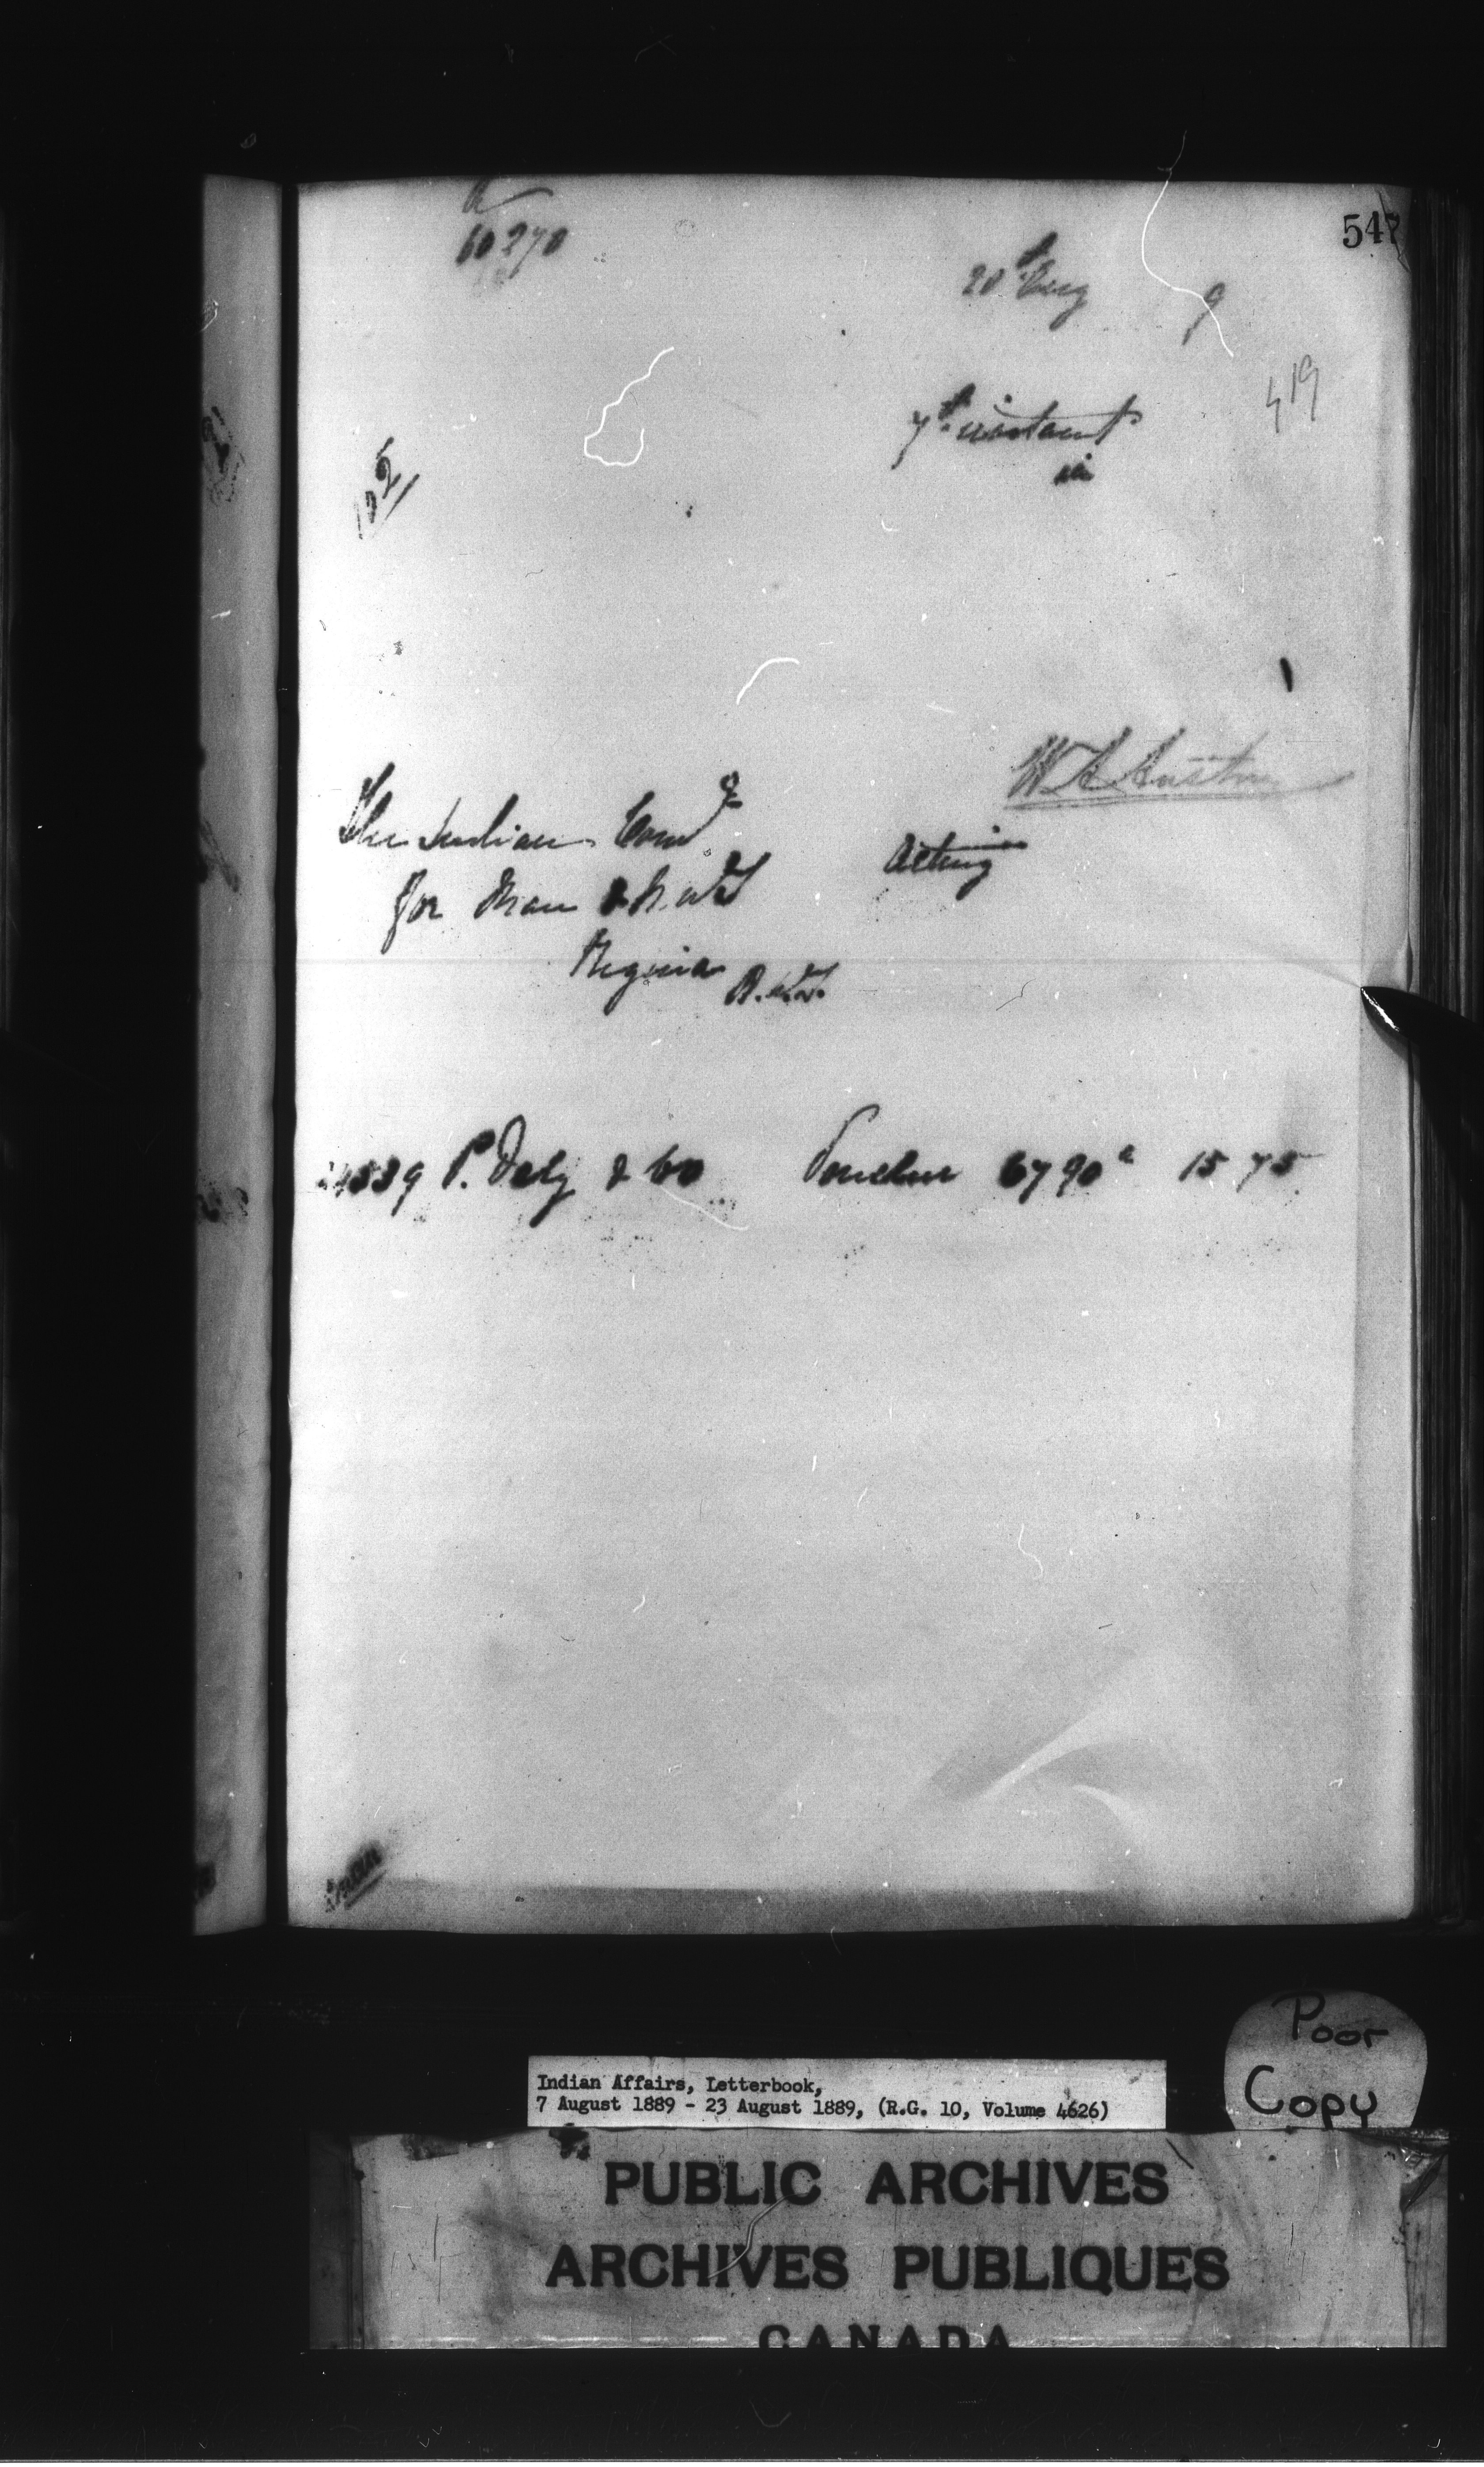 547
60270
20th Aug 9
419
7th instant
in
102
W A Austin
The Indian Comr
for Man & N.W.T
Acting
Regina N.W.T.
P. Daly & Co Voucher 6790a 15 75
Indian Affairs, Letterbook,
7 August 1889 - 23 August 1889, (R.G. 10, Volume 4626)
Poor
Copy
PUBLIC ARCHIVES
ARCHIVES PUBLIQUES
CANADA